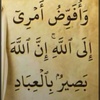 وَأُفَوِّضُ أَمْرِيٓ
إِلَى ٱللَّهِۚ إِنَّ ٱللَّهَ
بَصِيرُۢ بِٱلْعِبَادِ